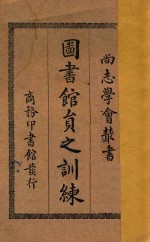 尚志學會叢書
圖書館員之訓練
商務印書館發行